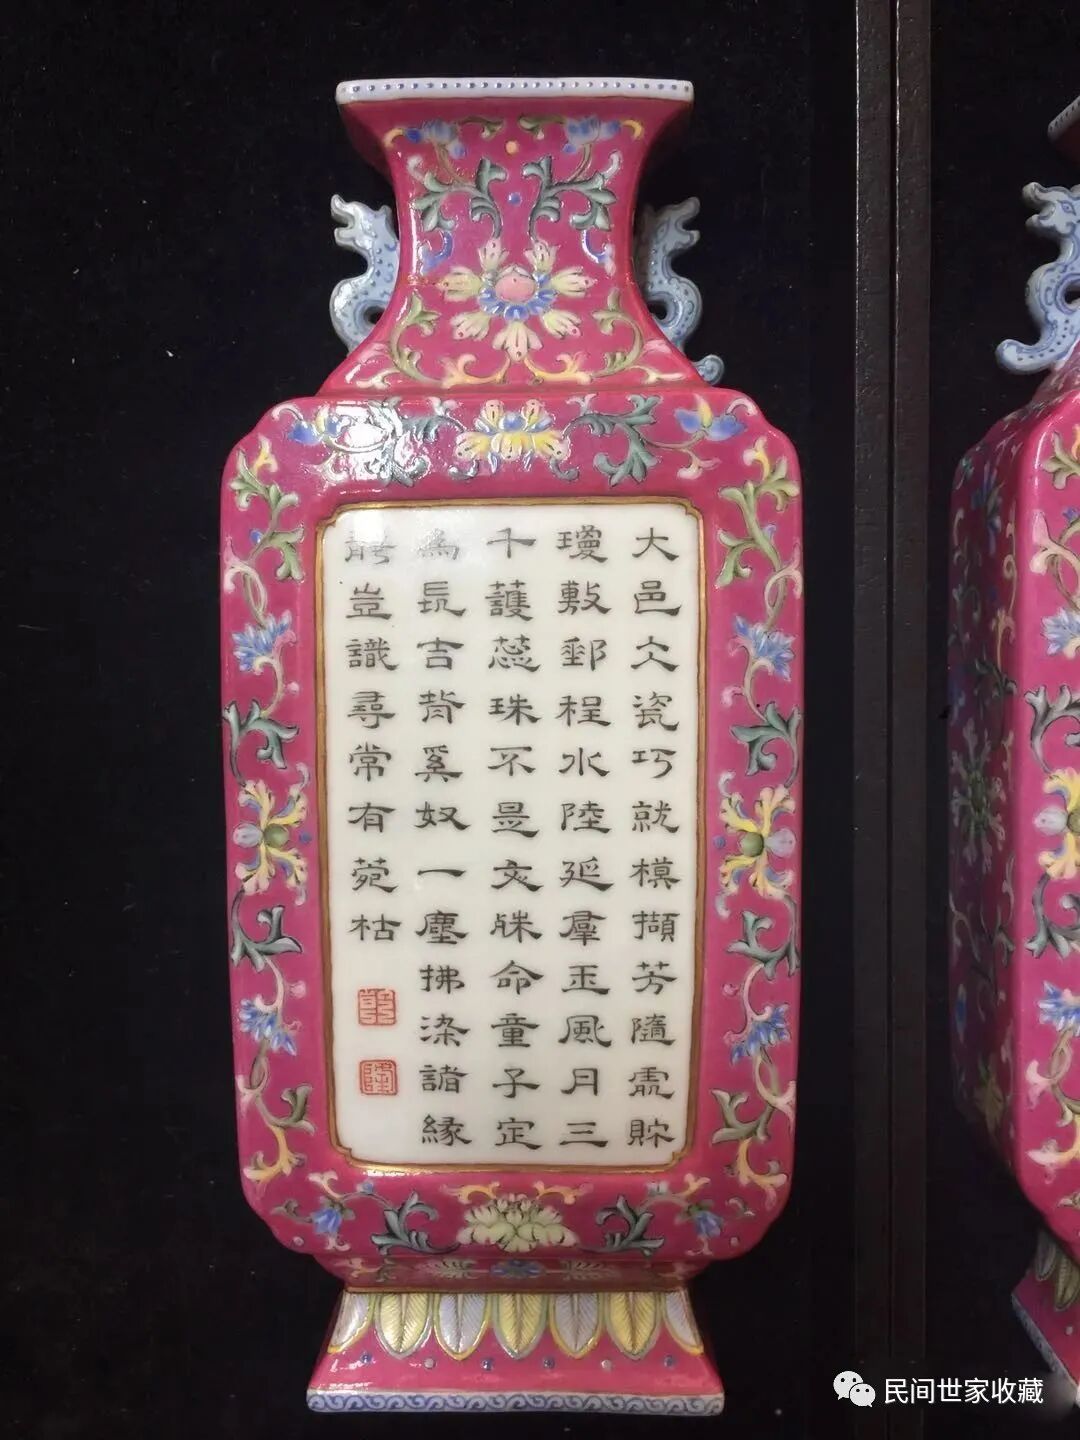 大邑仌瓷巧就模擷芳隨處貯
瓊敷郵程水陸延羣玉風月三
千護蕊珠不是文殊命童子定
為長吉背奚奴一塵拂染諸緣
靜豈識尋常有菀枯
乾
隆
民间世家收藏